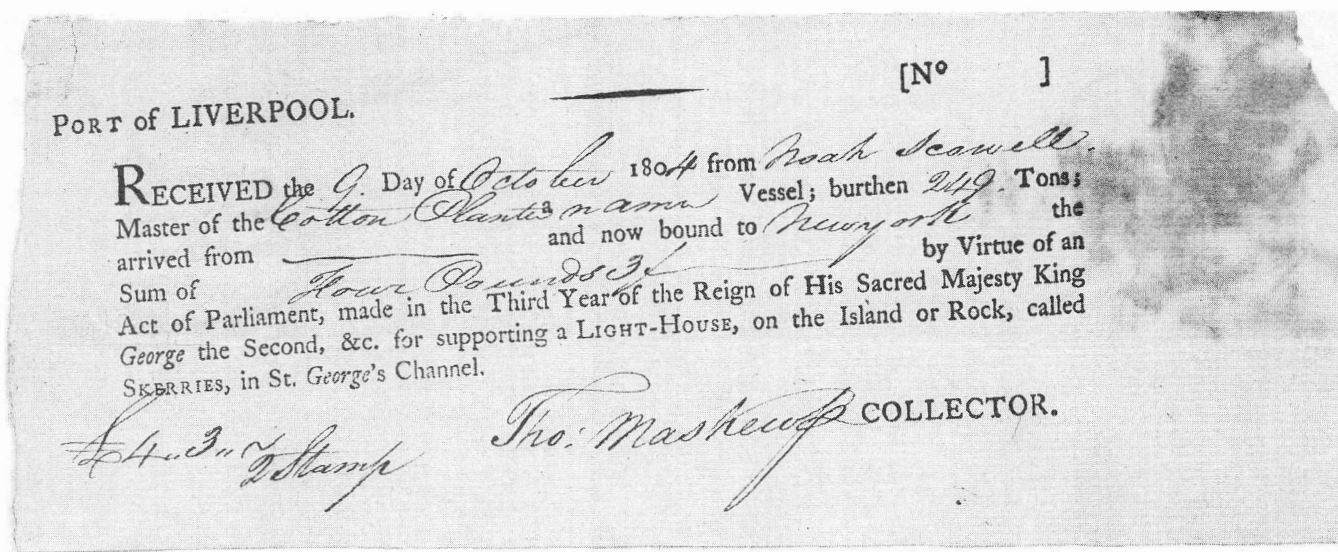 [No ]
PORT of LIVERPOOL.
RECEIVED the 9. Day of October 1804 from Noah Scovell.
Master of the Cotton Planter a namn Vessel; burthen 249. Tons;
arrived from and now bound to Newyork the
Sum of Four Pounds 3/ by Virtue of an
Act of Parliament, made in the Third Year of the Reign of His Sacred Majesty King
George the Second, &c. for supporting a LIGHT-HOUSE, on the Island or Rock, called
SKERRIES, in St. George's Channel.
Tho: Maskew COLLECTOR.
£4,,3,,~
2 Stamp